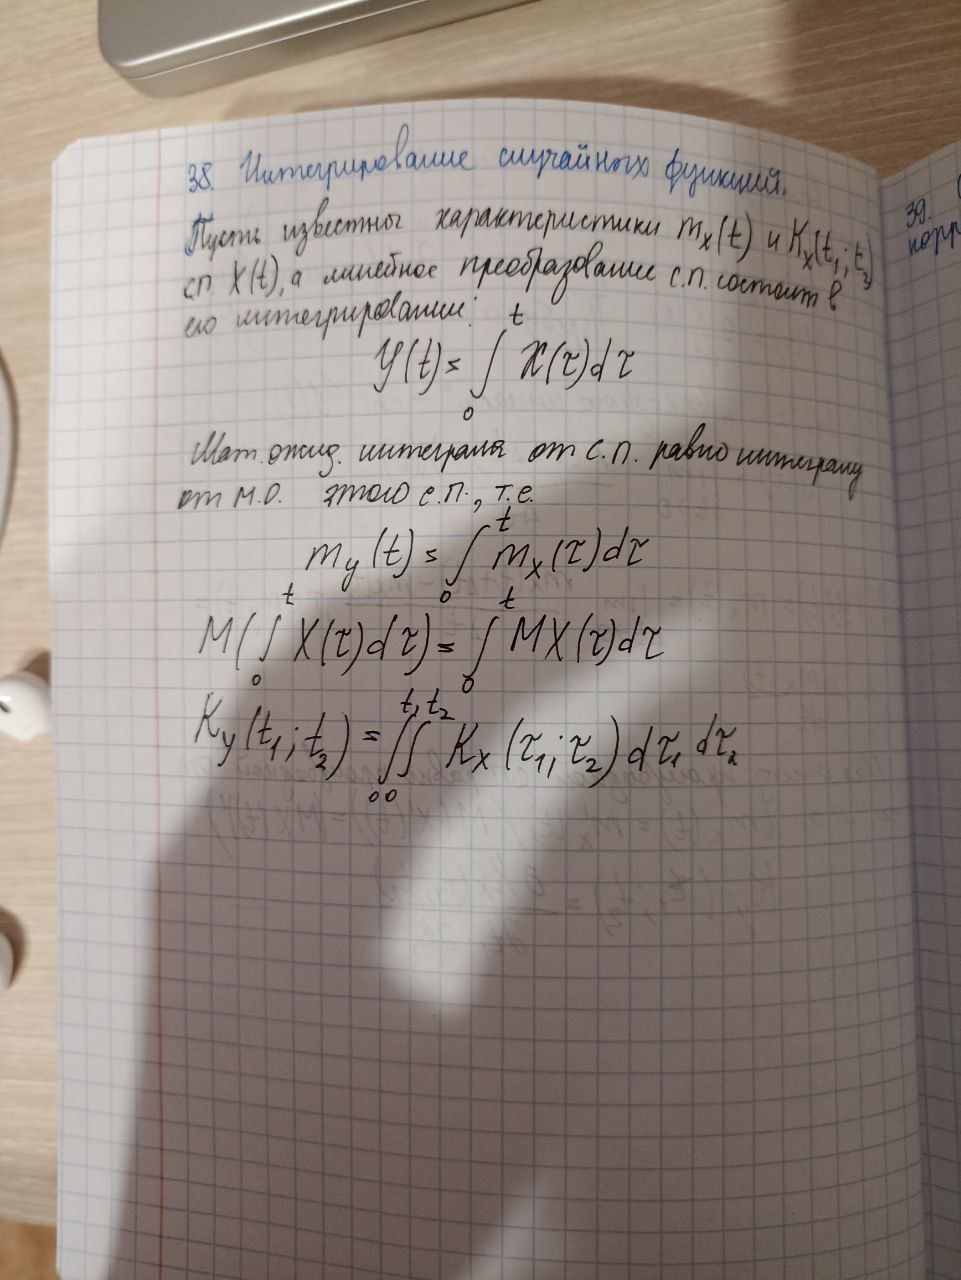 38. Интегрирование случайных функций.
Пусть известны характеристики mₓ(t) и Kₓ(t₁; t₂)
сп. X(t), а линейное преобразование с.п. состоит в
его интегрировании:
Y(t) = ∫₀ᵗ X(τ)dτ
Мат. ожид. интеграла от с.п. равно интегралу
от м.о. этого с.п., т.е.
m_y(t) = ∫₀ᵗ mₓ(τ)dτ
M(∫₀ᵗ X(τ)dτ) = ∫₀ᵗ MX(τ)dτ
K_y(t₁; t₂) = ∫₀^t₁ ∫₀^t₂ Kₓ(τ₁; τ₂) dτ₁ dτ₂
39.
корр